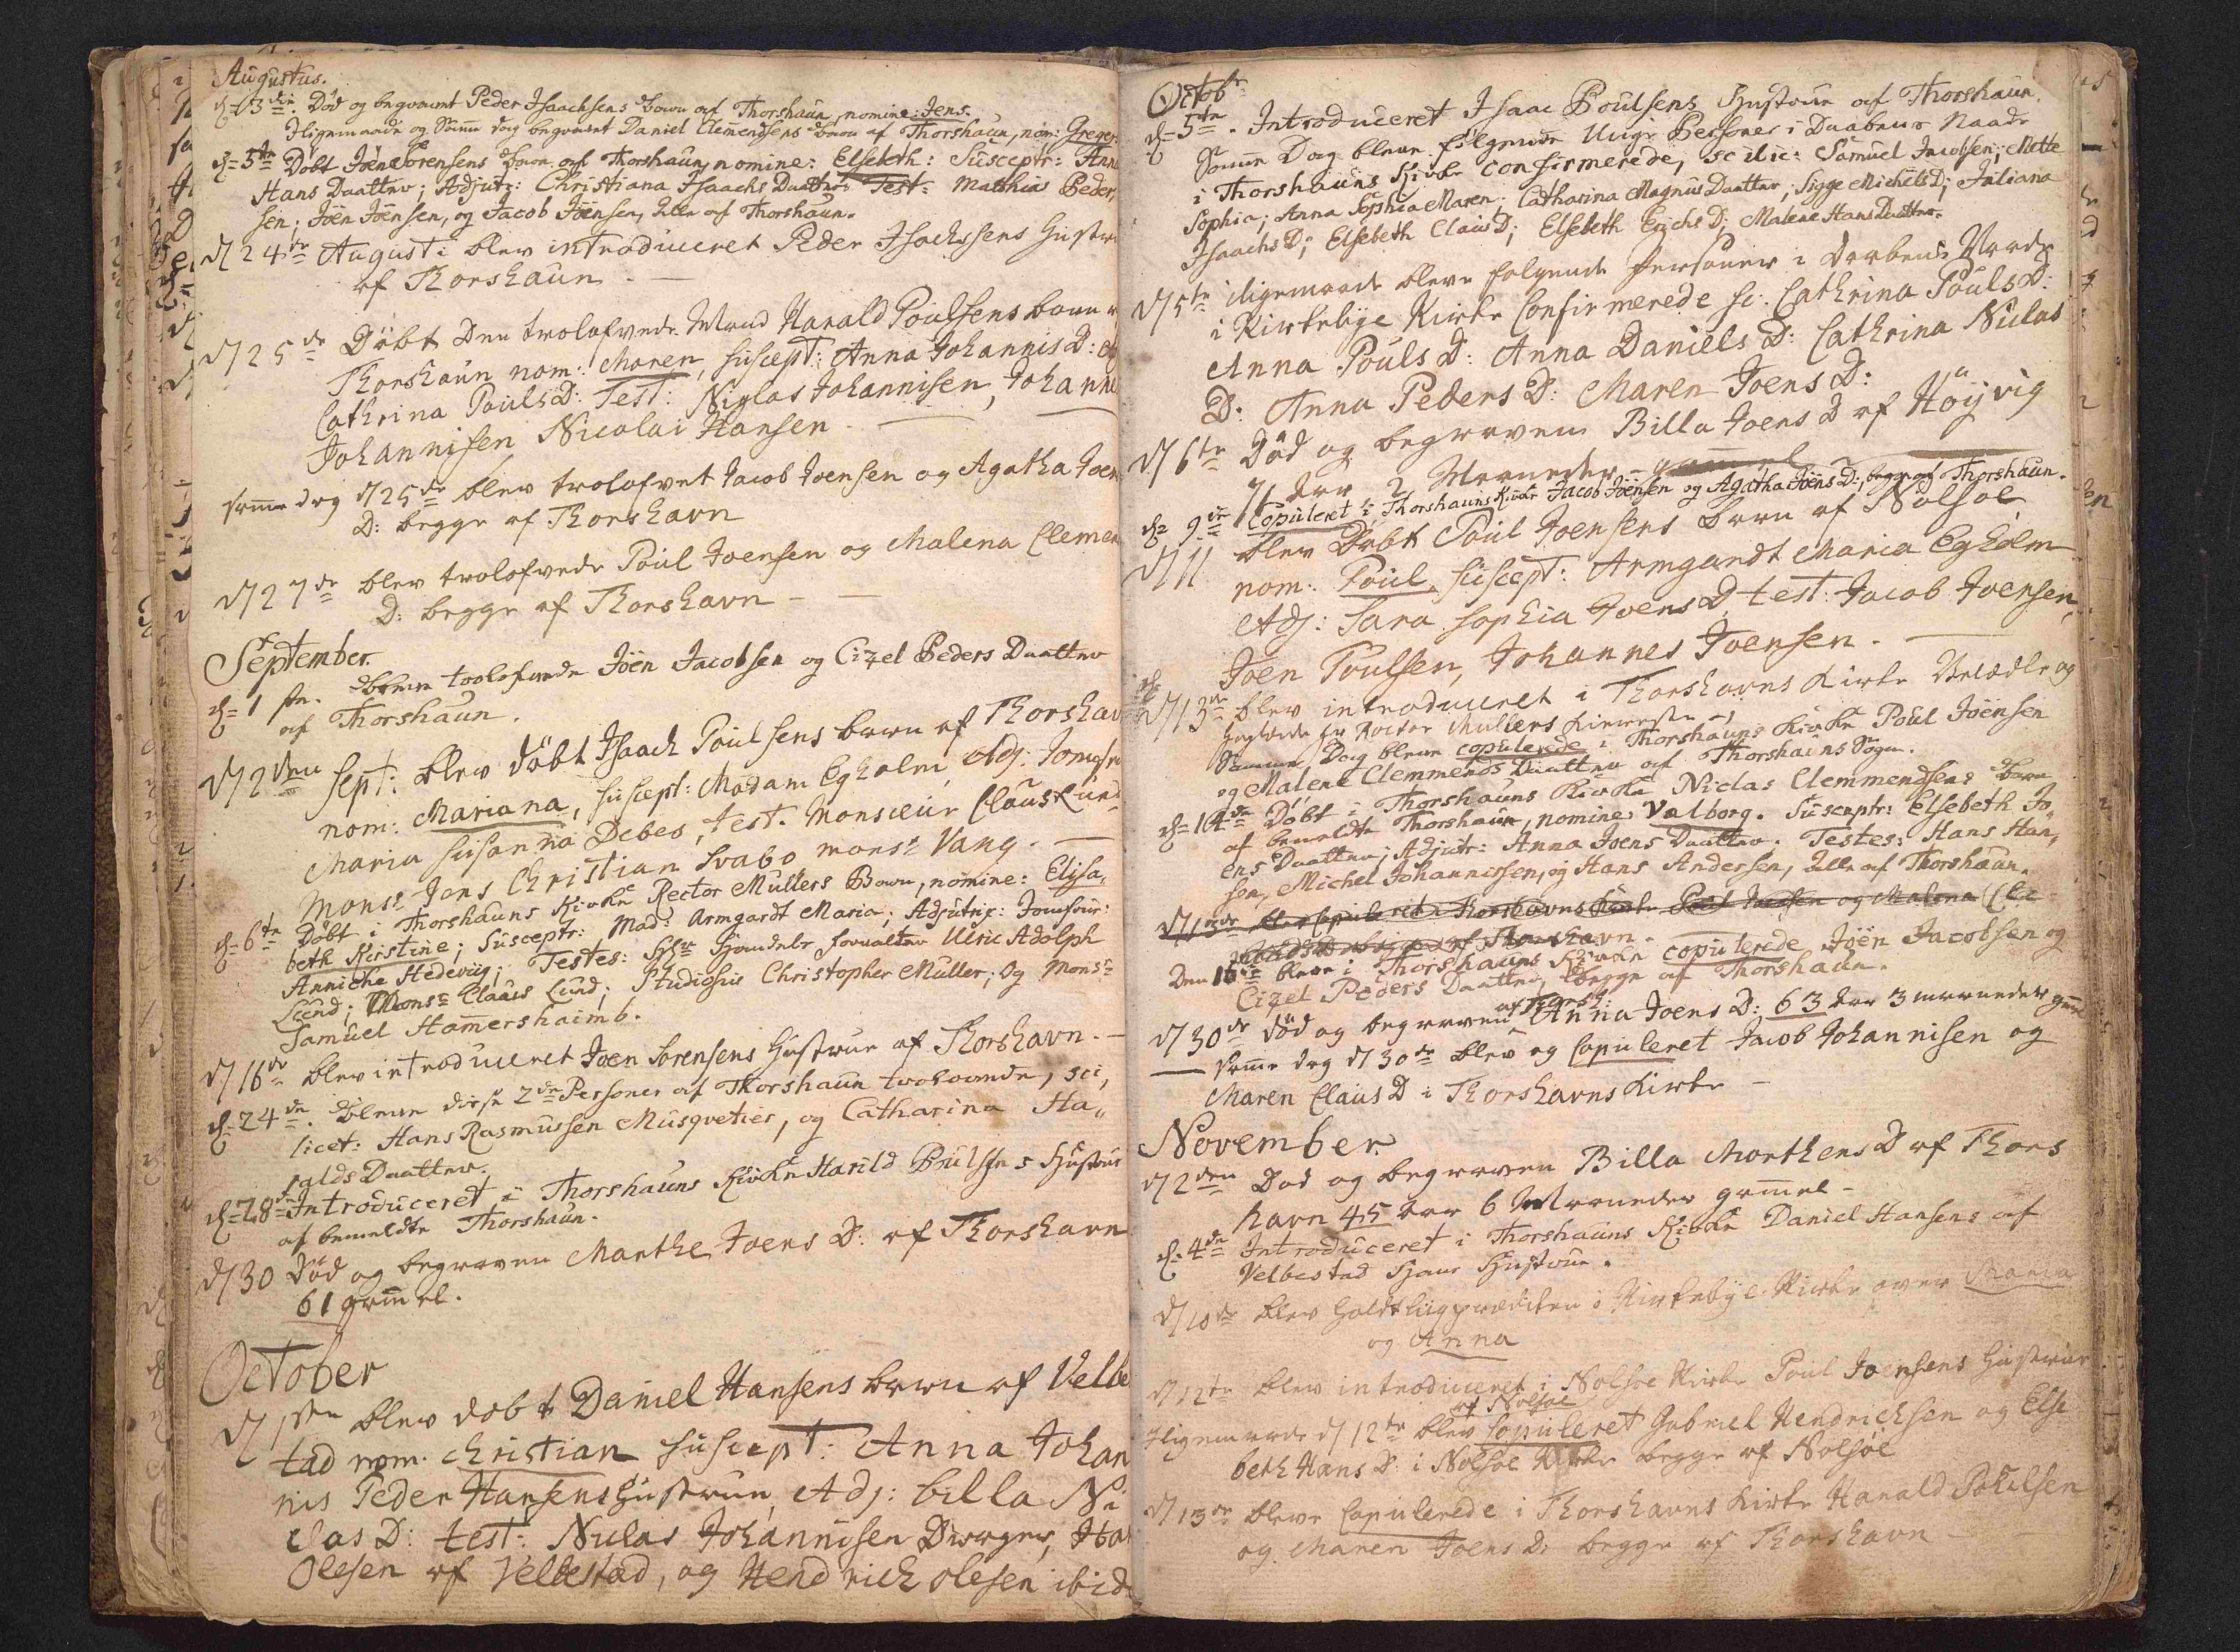 Augustus.
d= 3die. Död og begravet Peder Isaachsens Barn af Thorshaun, nomine: Jens.
Iligemaade og Samme dag begravet Daniel Clemendsens Barn af Thorshaun, nom: Greger
d= 5te Döbt Joen Sörensens Barn af Thorshaun, nomine: Elsebeth: Susceptr: Anna
Hans Daatter; Adjutr: Christiana Isaachs Daatter Test: Matthias Peder,
sen; Jöen Jöensen, og Jacob Jöensen, Alle af Thorshaun.
d 24de Augusti blev introduceret Peder Isachsens Hustru
af Thorshaun. —
d 25de Döbt Den trolofvede Mand Harald Poulsens barn
Thorshaun nom: Maren, suscept: Anna Johannis D:
Cathrina Pouls D: Test: Niglas Johannisen, Johanne
Johannisen, Nicolai Hansen. —
samme dag d 25de blev trolofvet Jacob Joensen og Agatha Joen
D: begge af Thorshavn
d 27de blev trolofvede Poul Joensen og Malena Clemen
D: begge af Thorshavn —
September.
d= 1ste. Bleve trolofvede Jöen Jacobsen og Cizel Peders Daatter
af Thorshaun.
d 2den Sept: blev döbt Isaach Poulsens barn af Thorshav
nom: Mariana, suscept: Madam Egholm, Adj: Jomfru
Maria Susanna Debes, test. Monsieur Claus Lund
Monsr Jens Christian Svabo monsr Vang. —
d= 6te Döbt i Thorshauns Kirke Rector Müllers Barn, nomine: Elisa,
beth Kirstine; Susceptr: Mad: Armgardt Maria; Adjutrix: Jomfrue:
Anniche Hedevig; Testes: Hr Handels forvalter Ulric Adolph
Lund; Monsr Claus Lund; Studiosus Christopher Müller; Og Monsr
Samuel Hamershaimb.
d 16de blev introduceret Joen Sörensens Hustrue af Thorshavn. —
d= 24de. Bleve disse 2de Personer af Thorshaun trolovede, sci,
licet: Hans Rasmussen Musqveteer, og Catharina Ha,
ralds Daatter.
d= 28de Introduceret i Thorshauns Kirke Harild Poulsens Hustrue
af bemeldte Thorshaun.
d 30 Död og begraven Marthe Joens D: af Thorshavn
61 gammel.
October
d 1ste blev döbt Daniel Hansens barn af Velbe
tad nom. Christian suscept: Anna Johan
nis Peder Hansens Hustrue, Adj: billa Ni
clas D: test: Niclas Johannisen Dverger, Ha
Olesen af Velbestad, og Hendrich Olesen ibid
Octobr
d= 5te. Introduceret Isaac Poulsens Hustrue af Thorshaun.
Samme Dag bleve følgende Unge Personer i Daabens Naade
i Thorshauns Kirke confirmerede, scilic: Samuel Jacobsen; Mette
Sophia; Anna Sophia Maren. Catharina Magnus Daatter; Sigge Michels D; Juliana
Isaachs D; Elsebeth Claus D; Elsebeth Erichs D; Malene Hans Daatter.
d 5te iligemaade bleve folgende personer i Daabens Naade
i Kirkebye Kirke Confirmerede sc: Cathrina Pouls D:
Anna Pouls D: Anna Daniels D: Cathrina Niclas
D: Anna Peders D: Maren Joens D:
d 6te Död og begraven Billa Joens D af Höyvig
71 Aar 2 Maaneder gammel
d= 9de Copuleret i Thorshauns Kirke Jacob Jöensen og Agatha Jöens D:, begge af Thorshaun.
d 11 blev Döbt Poul Joensens barn af Nolsøe
nom: Poul, suscept: Armgardt Maria Egholm
Adj: Sara Sophia Joens D, test: Jacob Joensen,
Joen Poulsen, Johannes Joensen. —
d 13de blev introduceret i Thorshavns Kirke Velædle og
Höylærde Hr Rector Mullers Kiæreste
Samme Dag bleve copulerede i Thorshauns Kirke Poul Jöensen
og Malene Clemmends Daatter af Thorshauns Sogn.
d= 14de Döbt i Thorshauns Kirke Niclas Clemmendsens Barn
af bemeldte Thorshaun, nomine Valborg. Susceptr: Elsebeth Jo,
ens Daatter; Adjutr: Anna Joens Daatter. Testes: Hans Han,
sen, Michel Johannessen, og Hans Andersen, Alle af Thorshaun.
d 13de blev Copuleret i Thorshavns Kirke Poul Joensen og Malena Cle
begge af Thorshavn.
Den 16de bleve i Thorshauns Kirke copulerede Jöen Jacobsen og
Cizel Peders Daatter, begge af Thorshaun.
d 30de död og begraven af Thorsh: Anna Joens D: 63 Aar 3 maaneder gml
— samme dag d 30de blev og Copuleret Jacob Johannisen og
Maren Claus D i Thorshavns Kirke —
November.
d 2den Död og begraven Billa Morthens D af Thors
havn 45 Aar 6 Maaneder gammel —
d= 4de Introduceret i Thorshauns Kirke Daniel Hansens af
Velbestad Hans Hustrue.
d 10de blev holdt liigprædiken i Kirkebye Kirke over Maria
og Anna
d 12te blev introduceret i Nolsøe Kirke Poul Joensens Hustrue
af Nolsøe
Iligemaade d 12te blev Copuleret Gabriel Hendrichsen og Else
beth Hans D: i Nolsøe Kirke begge af Nolsøe
d 13de bleve Copulerede i Thorshavns Kirke Harald Poulsen
og Maren Joens D: begge af Thorshavn —